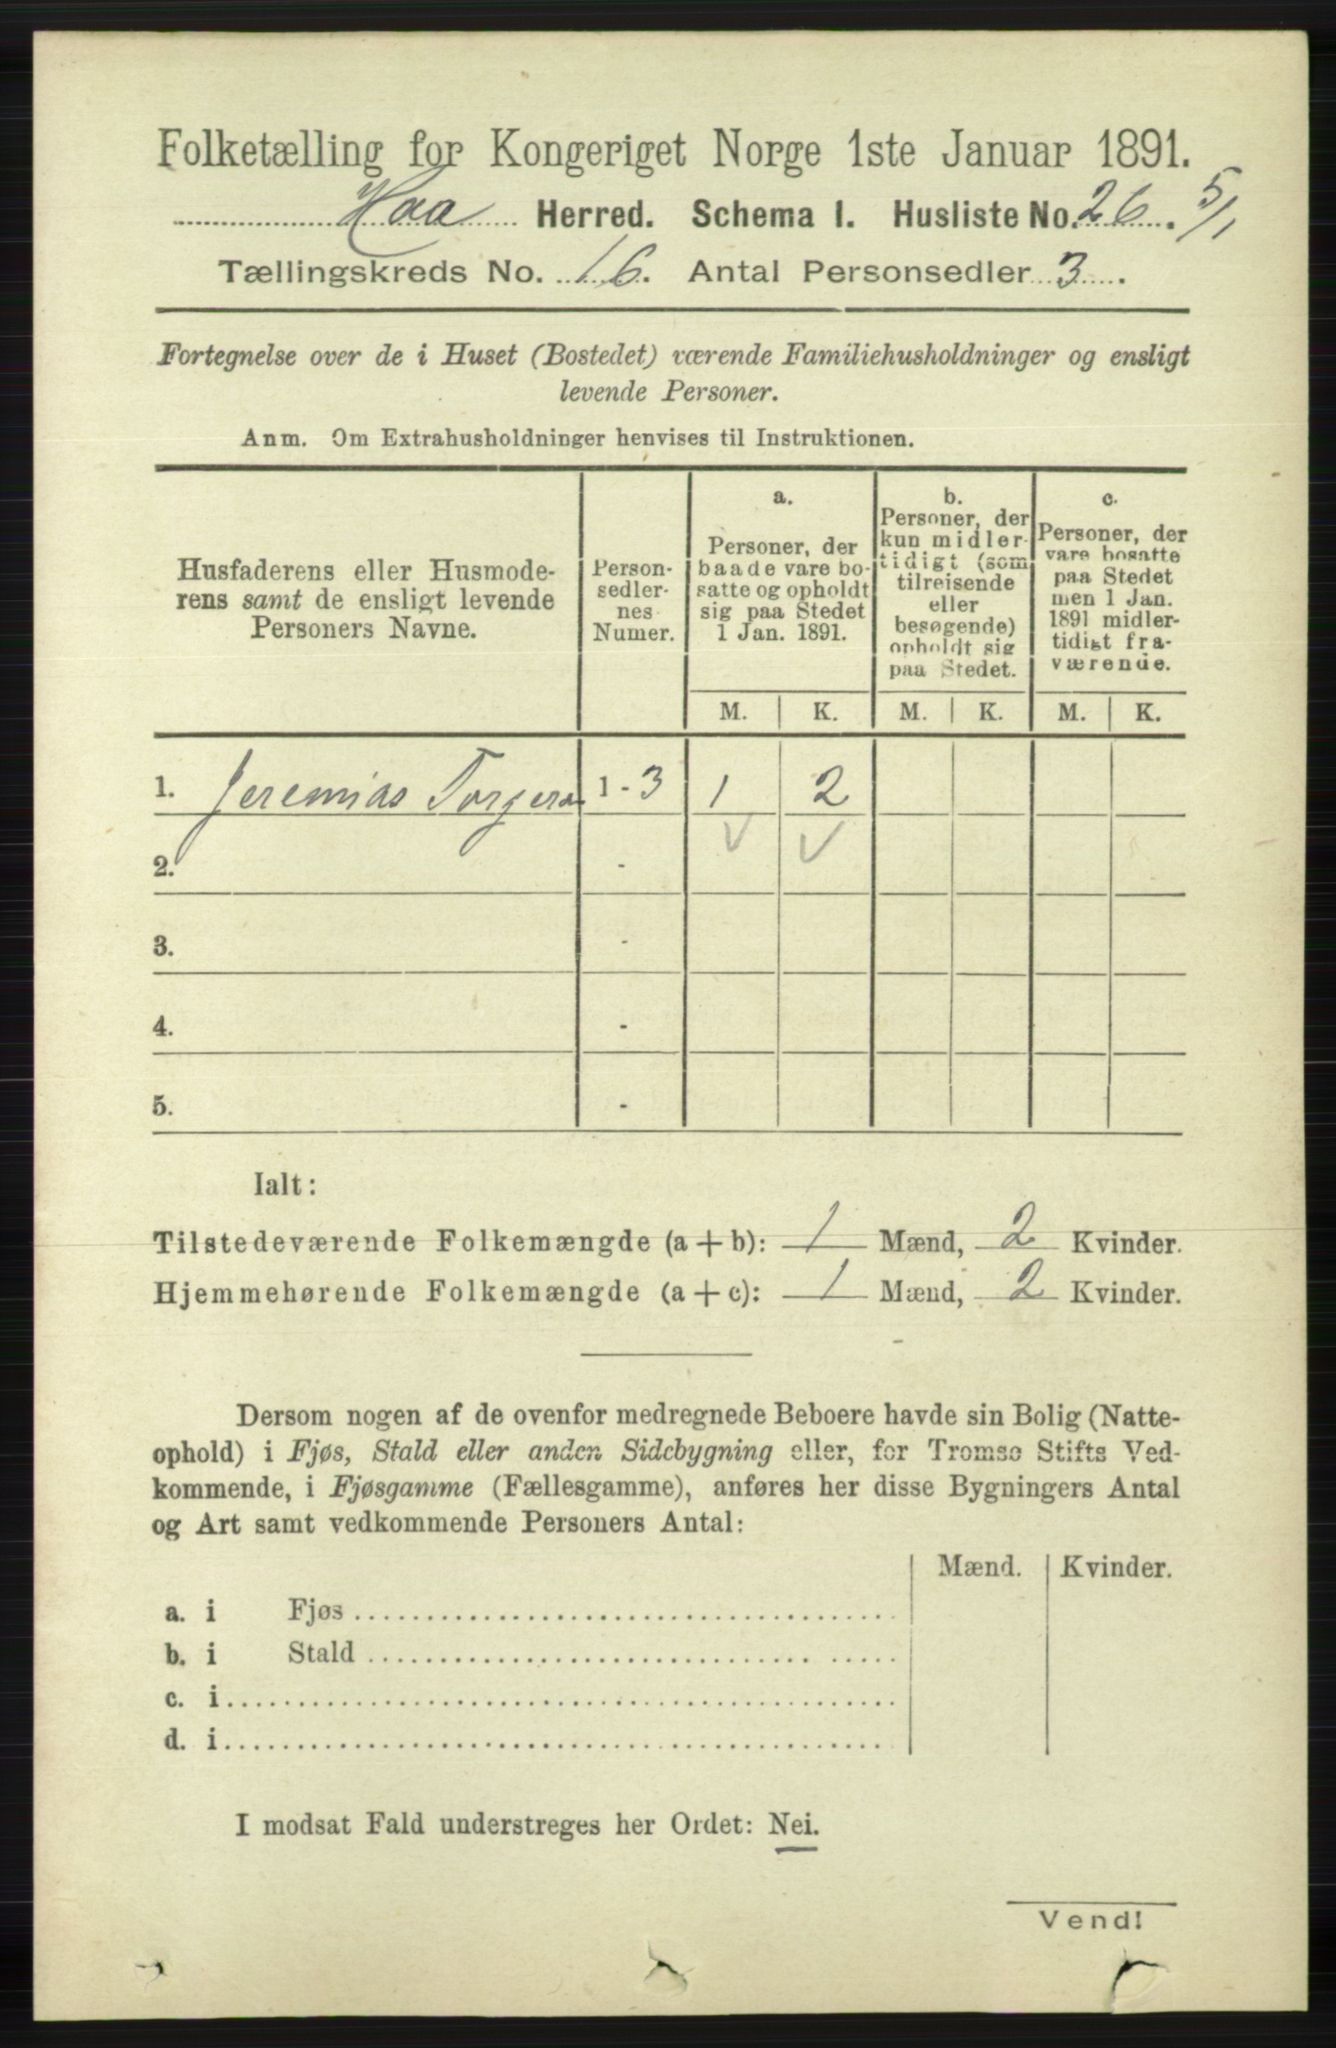 Folketælling for Kongeriget Norge 1ste Januar 1891.
Haa Herred. Schema I. Husliste No. 26. 5/1
Tællingskreds No. 16. Antal Personsedler 3.
Fortegnelse over de i Huset (Bostedet) værende Familiehusholdninger og ensligt
levende Personer.
Anm. Om Extrahusholdninger henvises til Instruktionen.
Husfaderens eller Husmode-
rens samt de ensligt levende
Personers Navne.
Person-
sedler-
nes
Numer.
a.
Personer, der
baade vare bo-
satte og opholdt
sig paa Stedet
1 Jan. 1891.
b.
Personer, der
kun midler-
tidigt (som
tilreisende
eller
besøgende)
opholdt sig
paa Stedet.
c.
Personer, der
vare bosatte
paa Stedet
men 1 Jan.
1891 midler-
tidigt fra-
værende.
M. K. M. K. M. K.
1. Jeremias 1-3 1 2
2. -
3. -
4. -
5. -
Ialt:
Tilstedeværende Folkemængde (a+b): 1 Mænd, 2 Kvinder.
Hjemmehørende Folkemængde (a+c): 1 Mænd, 2 Kvinder.
Dersom nogen af de ovenfor medregnede Beboere havde sin Bolig (Natte-
ophold) i Fjøs, Stald eller anden Sidebygning eller, for Tromsø Stifts Ved-
kommende, i Fjøsgamme (Fællesgamme), anføres her disse Bygningers Antal
og Art samt vedkommende Personers Antal:
Mænd. Kvinder.
a. i Fjøs
b. i Stald
c. i
d. i
I modsat Fald understreges her Ordet: Nei.
Vend!